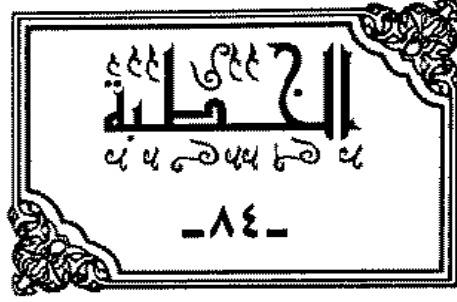 الخطبة
_٨٤_